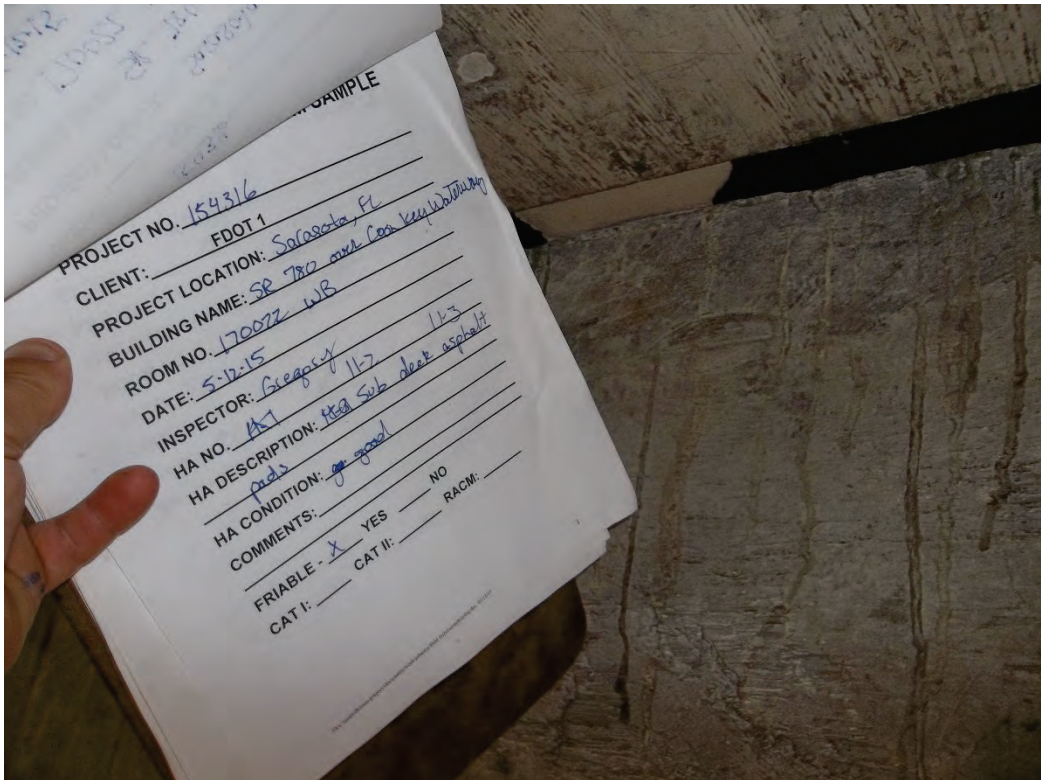 SAMPLE
PROJECT NO. 154316
CLIENT: FDOT 1
PROJECT LOCATION: Sarasota, FL
BUILDING NAME: SR 780 over Coon Key Waterway
ROOM NO. 170022 WB
DATE: 5-12-15
INSPECTOR: Gregory
HA NO. 11-2 11-3
HA DESCRIPTION: Sub deck asphalt
pads
HA CONDITION: good
COMMENTS:
FRIABLE - X YES NO
CAT I: CAT II: RACM: